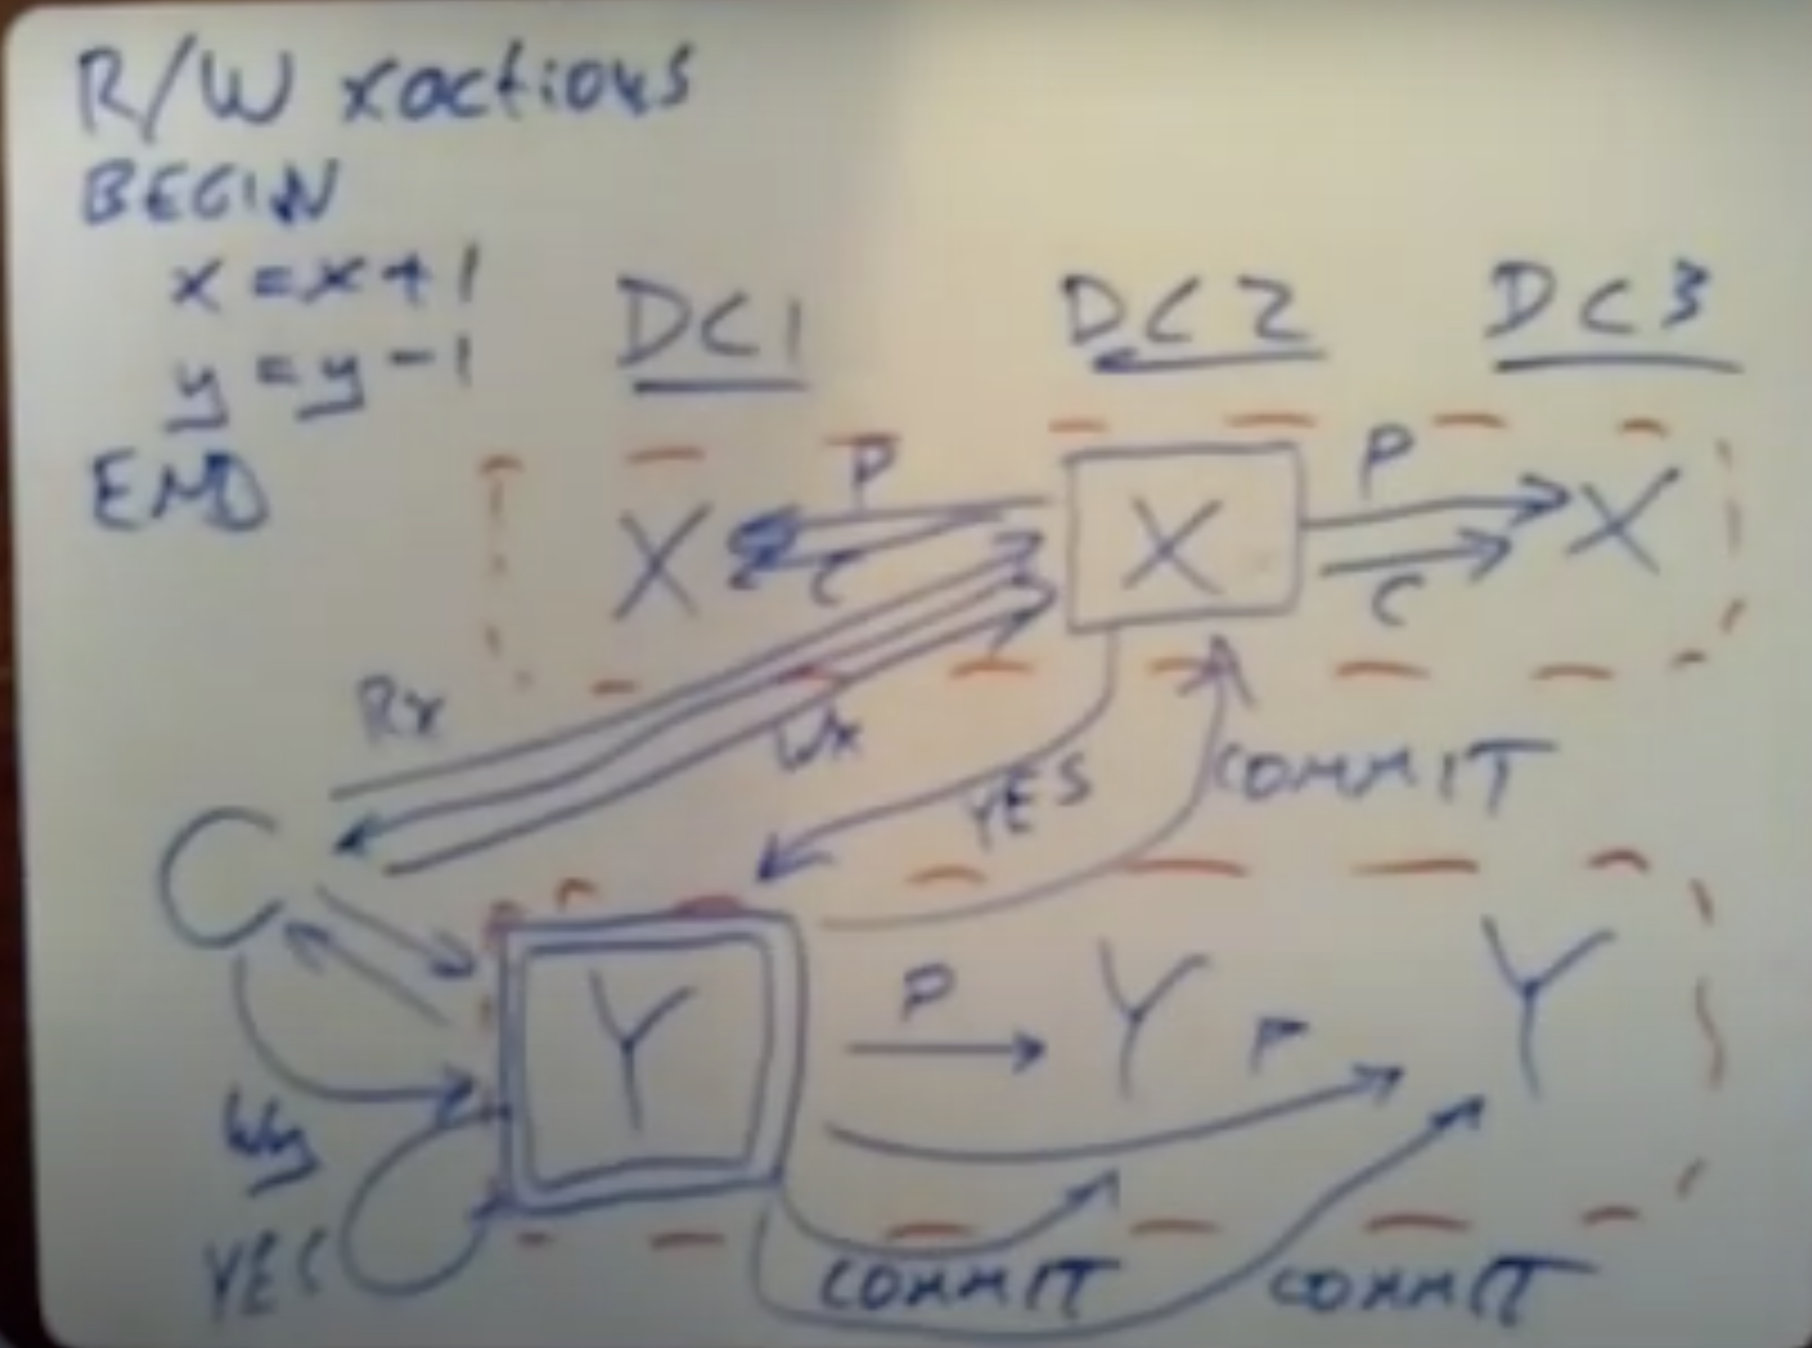 R/W xactions
BEGIN
x = x + 1
y = y - 1
END
DC1 DC2 DC3
P P
X X X
C C
Rx
Wx
YES COMMIT
C
Y Y Y
P P
Wy
YES
COMMIT COMMIT